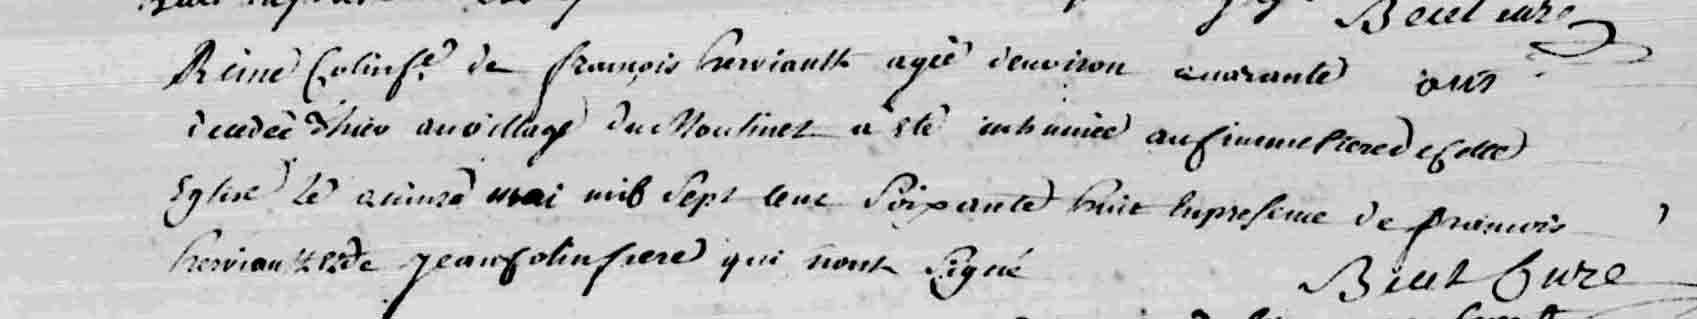 Beut cure
Reine Colin fe de françois herviault agée denviron quarante ans
decedeé d'hier au village du Moulinet a eté inhumée au simmetiere de cette
Eglise le quinze mai mil sept cent soixante huit en presence de francois
herviault et de jean Colin frere qui nont signé
Beut Cure